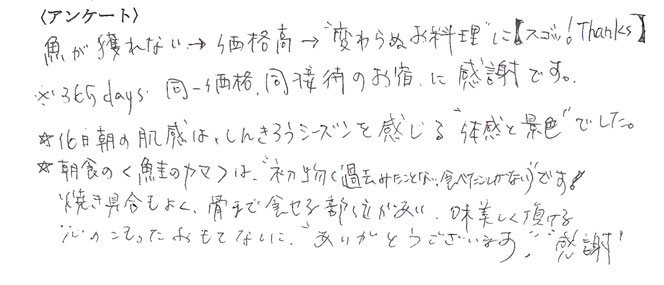 〈アンケート〉
魚が獲れない→価格高→"変わらぬお料理"に【スゴッ! Thanks】
※365days. 同一価格、同接待のお宿、に感謝です。
☆化日朝の肌感は、しんきろうシーズンを感じる"体感と景色"でした。
☆朝食の〈鮭のカマ〉は、"初物(過去みたことない、食べたことしかない)"です!
焼き具合もよく、骨まで食せる部位があい、味美しく頂ける
心のこもったおもてなしに、"ありがとうございます。""感謝"